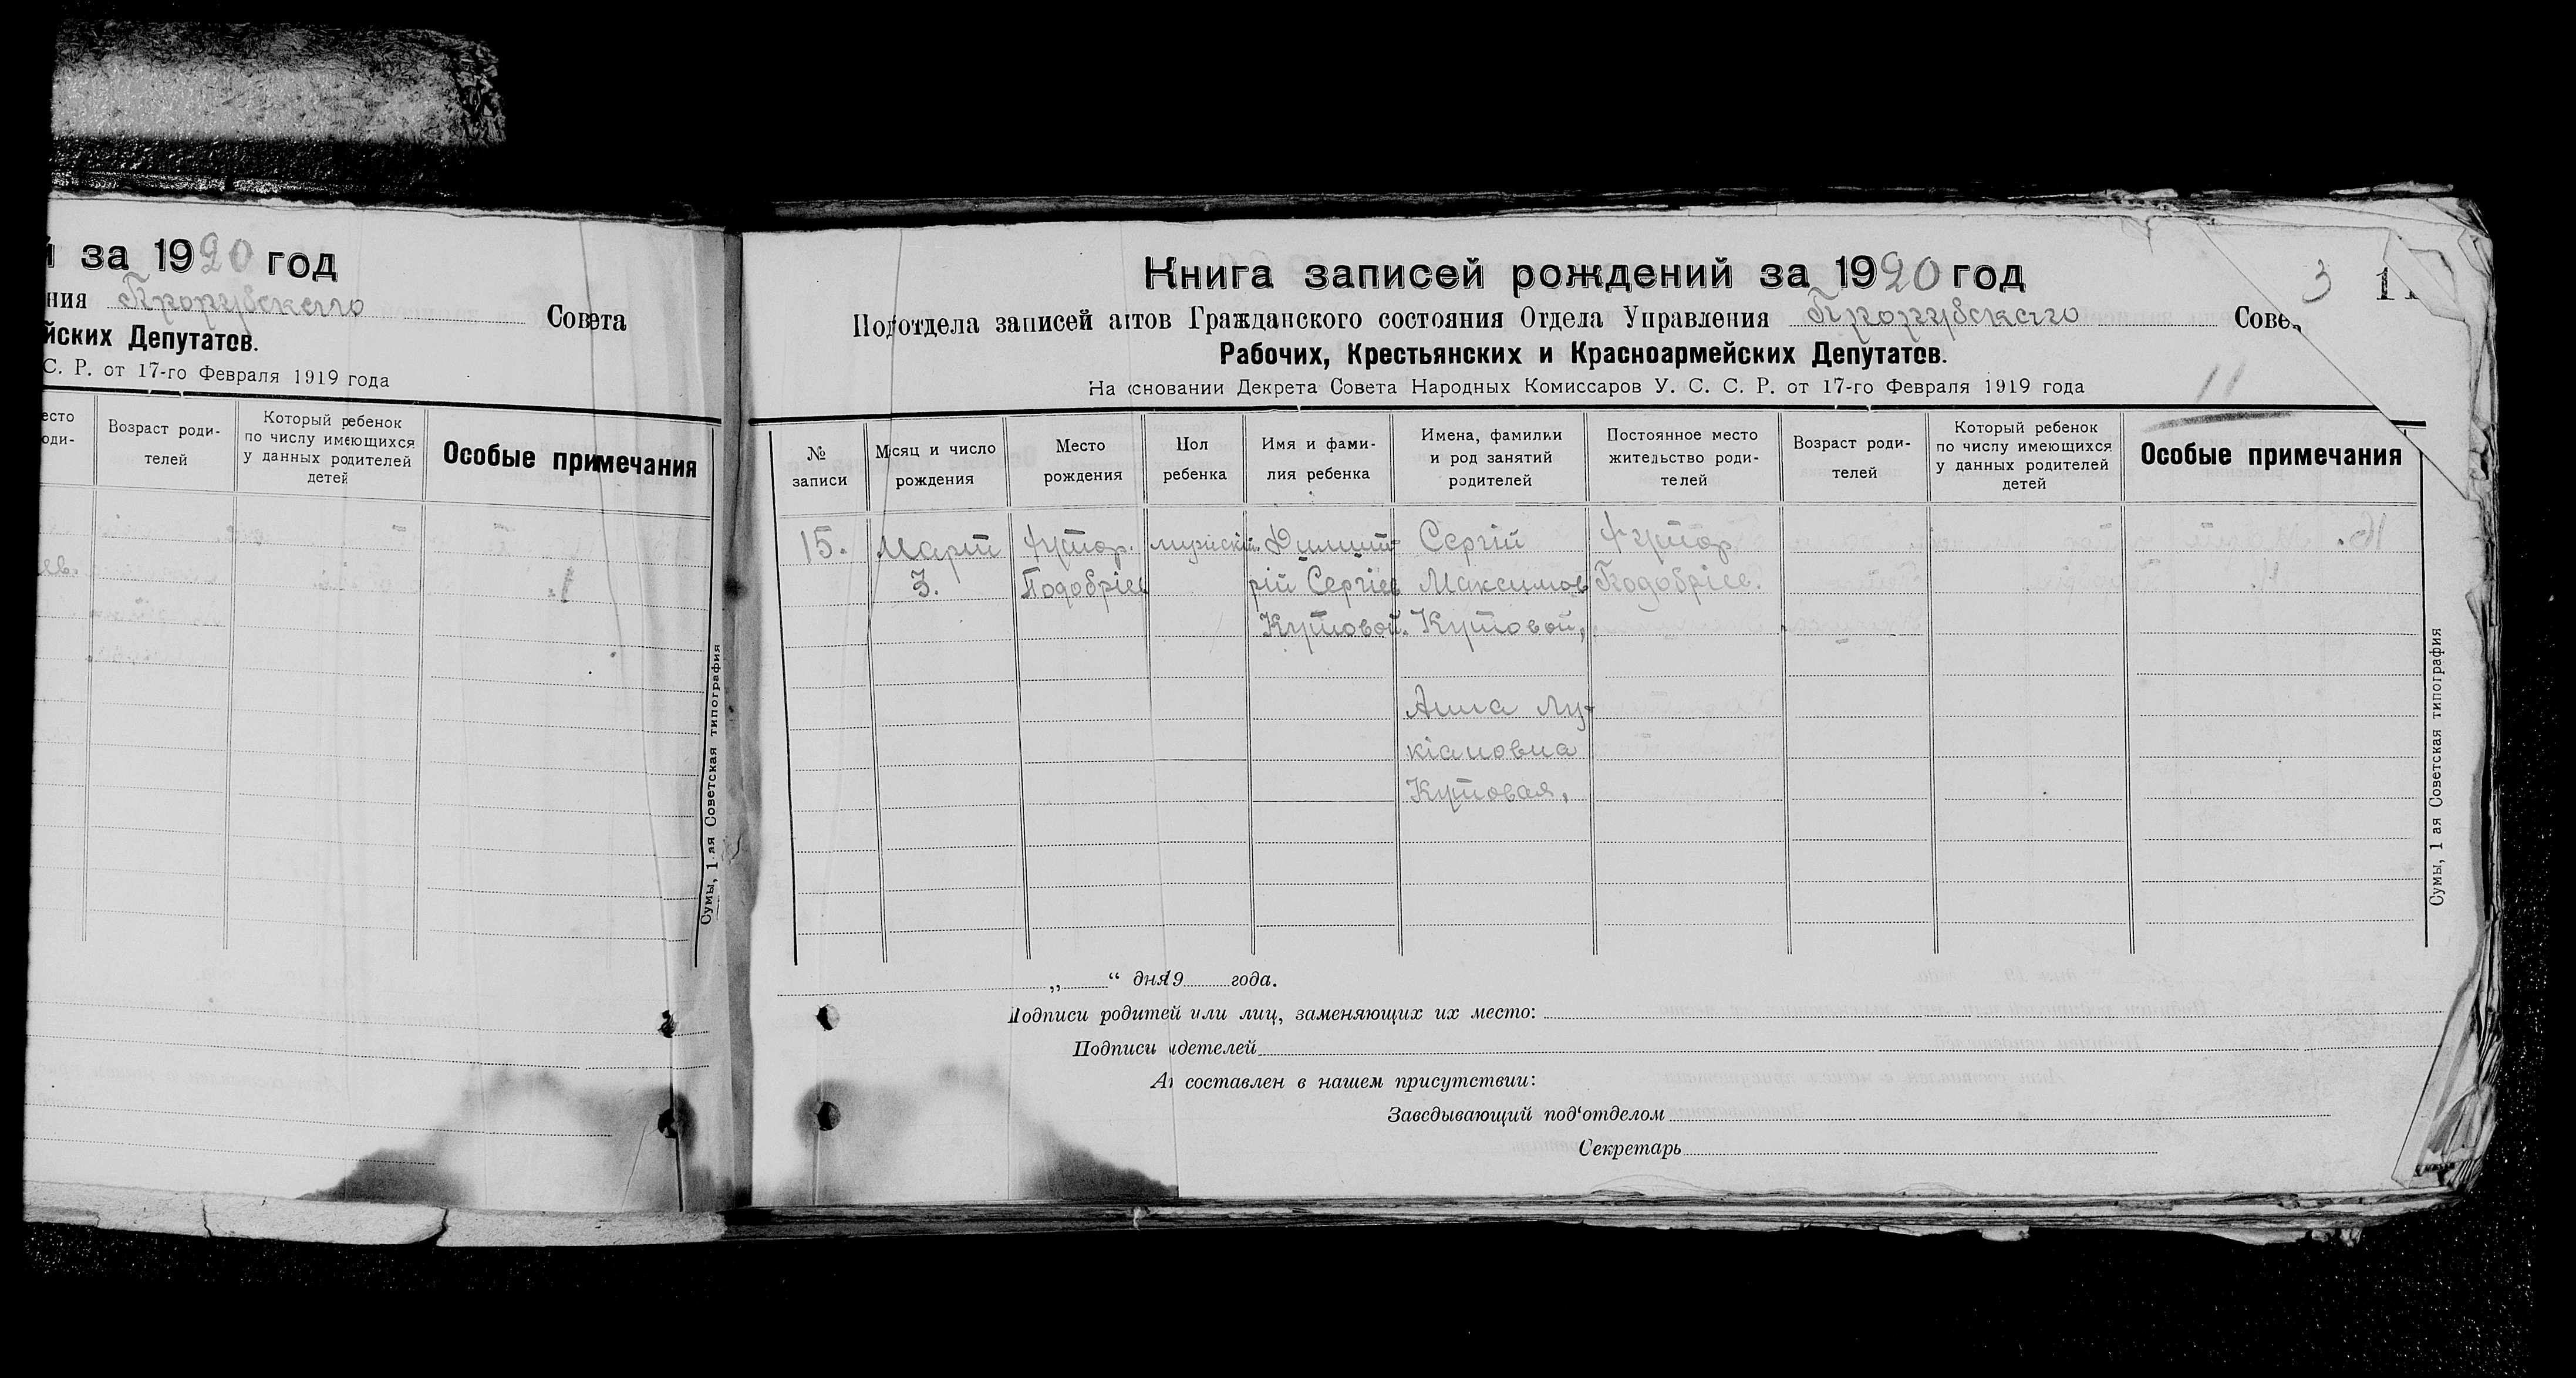 за 1920 год
ния Прорубскаго Совета
йских Депутатов.
С. Р. от 17-го Февраля 1919 года
есто
оди-
Возраст роди-
телей
Который ребенок
по числу имеющихся
у данных родителей
детей
Особые примечания
ев.
Сумы, 1 ая Советская типография
Книга записей рождений за 1920 год
3 11
Подотдела записей актов Гражданского состояния Отдела Управления Прорубскаго Сове
Рабочих, Крестьянских и Красноармейских Депутатов.
На основании Декрета Совета Народных Комиссаров У. С. С. Р. от 17-го Февраля 1919 года
11
№
записи
Месяц и число
рождения
Место
рождения
Пол
ребенка
Имя и фами-
лия ребенка
Имена, фамилии
и род занятий
родителей
Постоянное место
жительство роди-
телей
Возраст роди-
телей
Который ребенок
по числу имеющихся
у данных родителей
детей
Особые примечания
15. Март хутор. мужский. Димит- Сергій хутор
3. Подобріев рій Сергіев Максимов Подобріев.
Кутовой. Кутовой,
Анна Лу-
кіановна
Кутовая,
„ “ дня 19 года.
Подписи родителей или лиц, заменяющих их место:
Подписи свидетелей
Акт составлен в нашем присутствии:
Заведывающий под‘отделом
Секретарь
Сумы, 1 ая Советская типография